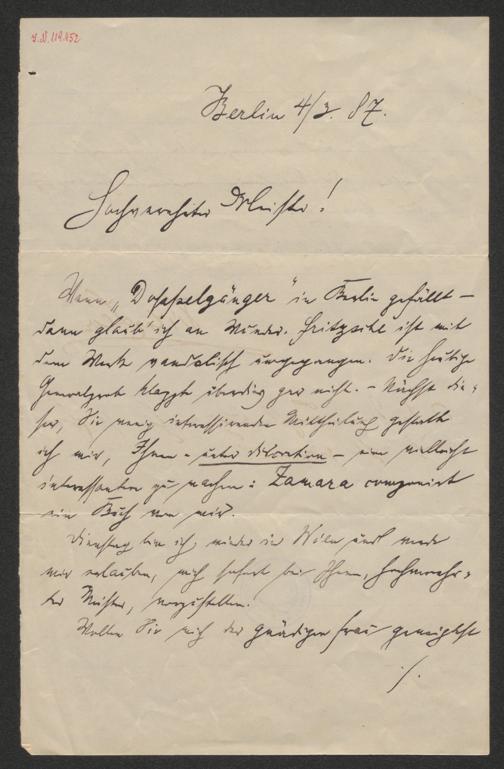 I.N. 119.452
Berlin 4/3. 87.
Hochverehrter Meister!
Wenn „Doppelgänger“ in Berlin gefällt –
dann glaub' ich an Wunder. Fritzsche ist mit
dem Werk vandalisch umgegangen. Die heutige
Generalprob klappte überdies gar nicht. – Nächst die-
ser, Sie wenig interessirenden Mittheilung gestatte
ich mir, Ihnen – unter Discretion – eine vielleicht
interessantere zu machen: Zamara componirt
ein Buch von mir.
Dienstag bin ich wieder in Wien und werde
mir erlauben, mich sofort bei Ihnen, hochverehr-
ter Meister, vorzustellen.
Wollen Sie mich der gnädigen Frau geneigtest
./.